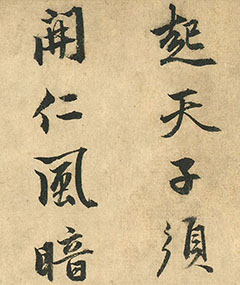 起天子須
開仁風暗